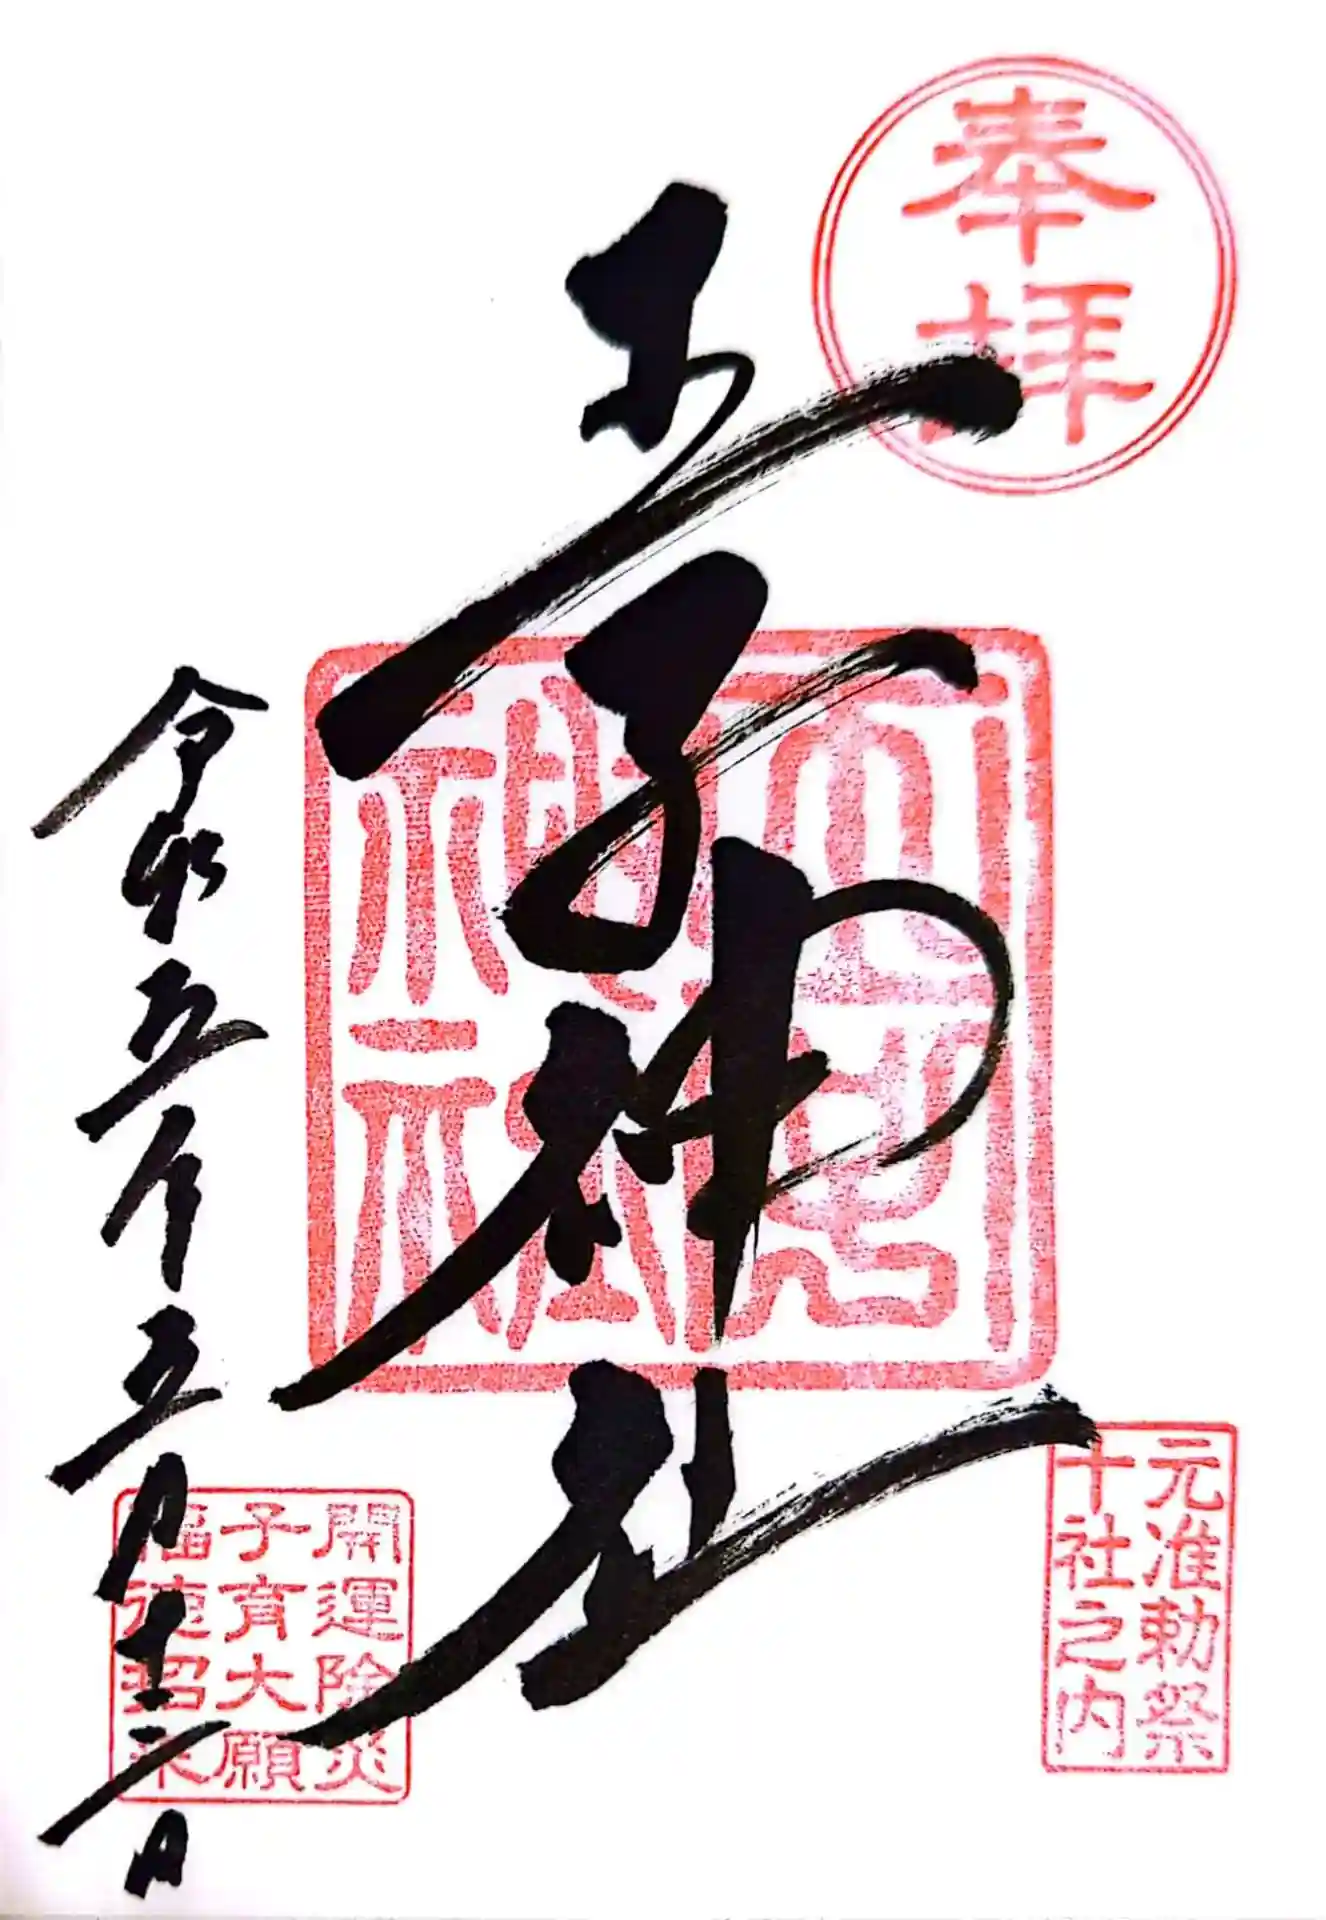 奉拝
王子神社
元准勅祭
十社之内
令和五年五月
開運除災
子育大願
福徳招来